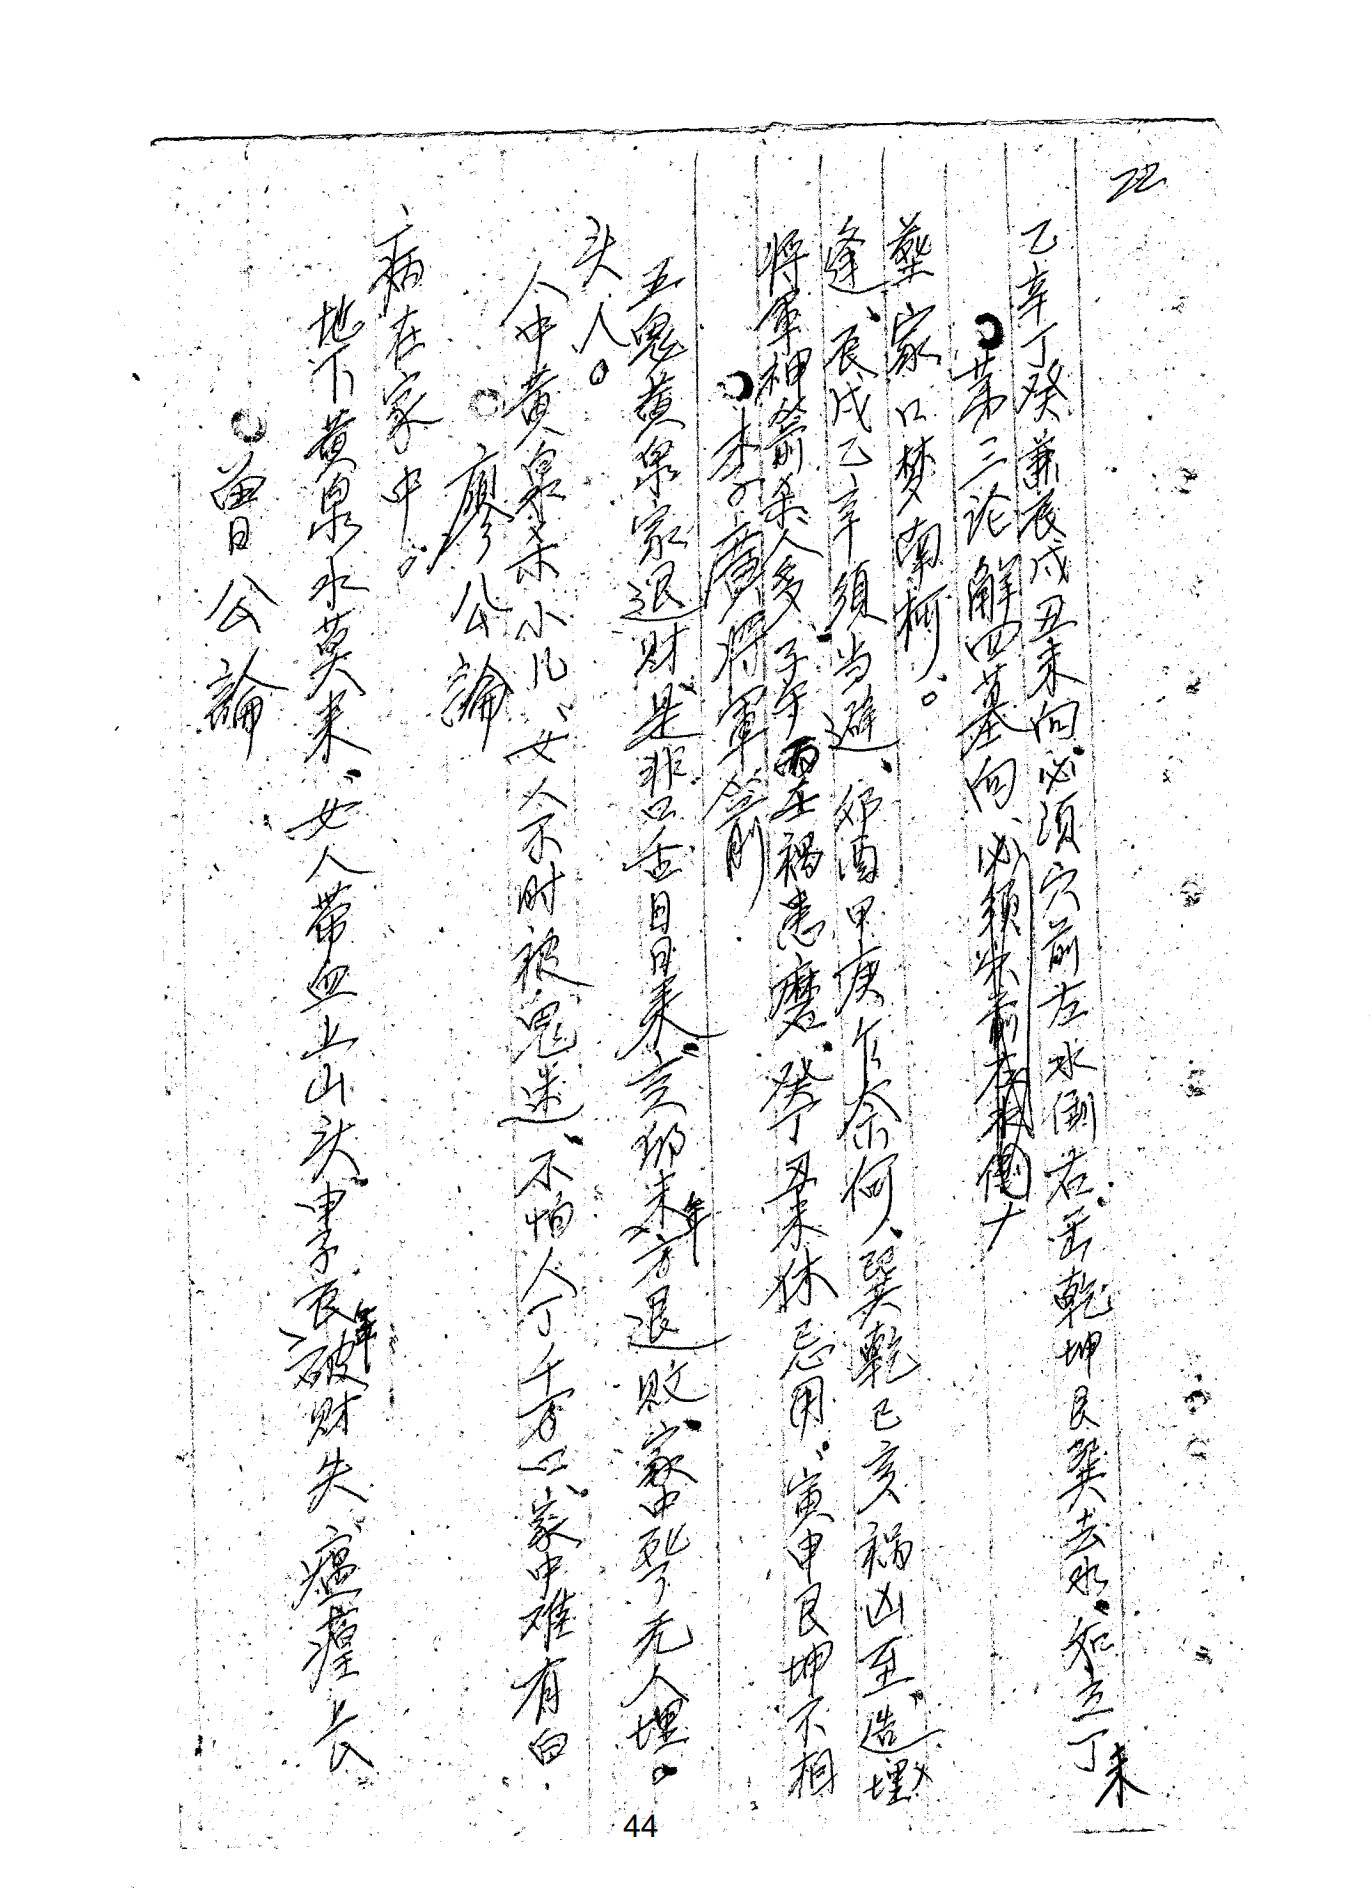 22
乙辛丁癸兼辰戌丑未向必须穴前左水倒右出乾坤艮巽去水如立丁未
第三论解四墓向
塟家口梦南柯。
逢、辰戌乙辛须当避、卯酉甲庚乍奈何、巽乾巳亥祸凶至、造埋
将军神箭杀人多、子午两壬祸患磨、癸丁丑未休忌用、寅申艮坤不相
李广将军箭
五鬼黄泉家退财是非口舌日日来、亥卯未年方退败、家中死了无人埋。
头人。
人中黄泉杀小儿、女人不时被鬼迷、不怕人丁千万口、家中难有白
廖公論
病在家中。
地下黄泉水莫来、女人带血上山头、申子辰年破财失、瘟㾮长
曾公論
44